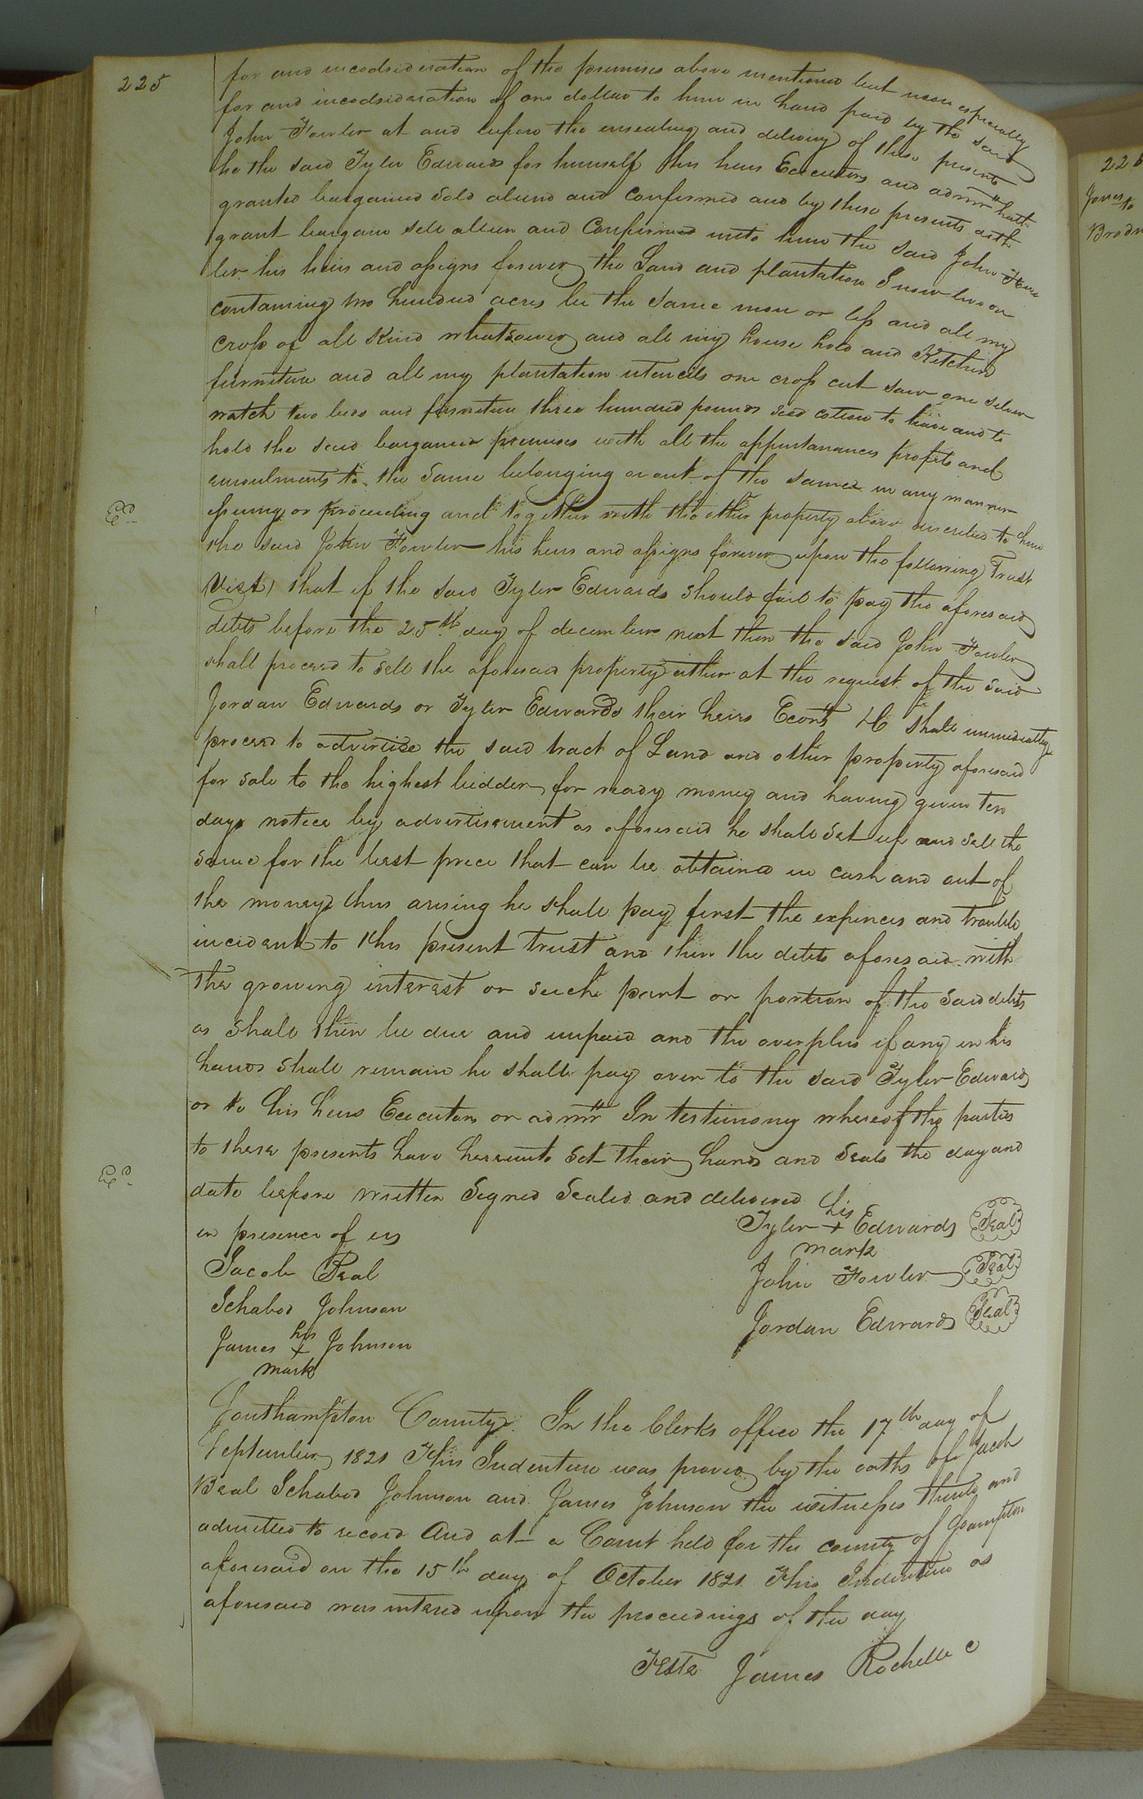 225
for and incodsideration of the premises above mentioned but more especially
for and incodsideration of one dollar to him in hand paid by the said
John Fowler at and before the ensealing and delivery of these presents
he the said Tyler Edwards for himself his heirs Executors and admrs hath
granted bargained sold aliend and confirmed and by these presents doth
grant bargain sell alien and Confirmed unto him the said John Fow
ler his heirs and assigns forever the Land and plantation I now live on
containing two hundred acres be the same more or less and all my
crop of all kind whatsoever and all my house hold and Kitchin
furniture and all my plantation utencils one cross cut saw one silver
watch two beds and furniture three hundred pounds seed cotton to have and to
hold the said bargained premises with all the appurtanances profits and
emoulments to the same belonging or out of the same in any manner
issuing or proceeding and together with the other property above to him
the said John Fowler his heirs and assigns forever upon the following Trust
Vizt, that if the said Tyler Edwards should fail to pay the aforesaid
debts before the 25th day of december next then the said John Fowler
shall proceed to sell the aforesaid property either at the request of the said
Jordan Edwards or Tyler Edwards their heirs Ecors &c shall immediately
proceed to advertize the said tract of Land and other property aforesaid
for sale to the highest bidder for ready money and having given ten
days notice by advertisement as aforesaid he shall set up and sell the
same for the best price that can be obtained in cash and out of
the money thus arising he shall pay first the expences and trouble
incident to this present trust and then the debts aforesaid with
the growing interest or such part or portion of the said debts
as shall then be due and unpaid and the overplus if any in his
hands shall remain he shall pay over to the said Tyler Edwards
or to his heirs Executors or admrs In testimony whereof the parties
to these presents have hereunto set their hands and seals the day and
date before written Signed Sealed and delivered
in presence of us
Jacob Beal
Ichabod Johnson
his
James + Johnson
mark
his
Tyler + Edwards Seal
mark
John Fowler Seal
Jordan Edwards Seal
Southampton County. In the Clerks office the 17th day of
September 1821 This Indenture was proved by the oaths of Jacob
Beal Ichabod Johnson and James Johnson the witnesses thereto and
admitted to record And at a Court held for the county of Shampton
aforesaid on the 15th day of October 1821 This Indenture as
aforesaid was intered upon the proceedings of the day
Teste James Rochelle C
Exd
Exd
226
Jones
to
Brodn